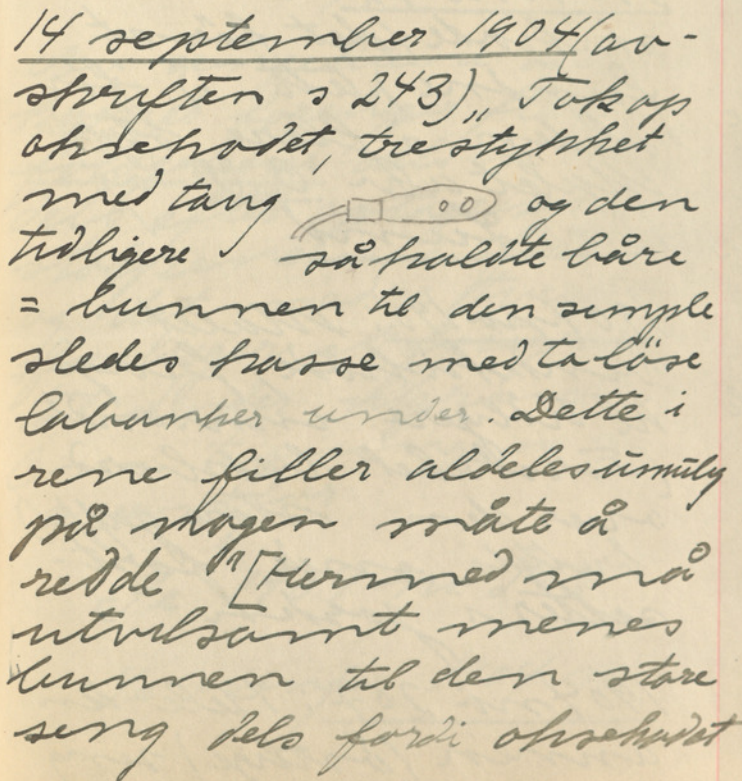 14 september 1904 (av-
skriften s 243) „ Tok op
oksehodet, trestykket
med tang og den
tidligere såkaldte båre
= bunnen til den simple
sledes kasse med to löse
labanker under. Dette i
rene filler aldeles umulig
på nogen måte å
redde " [Hermed må
utvilsomt menes
bunnen til den store
seng dels fordi oksehodet